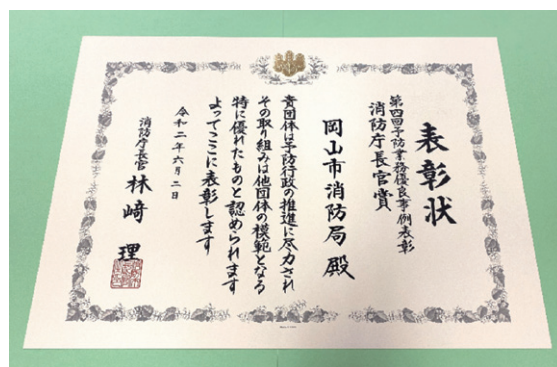 表彰状
第四回予防業務優良事例表彰
消防庁長官賞
岡山市消防局 殿
貴団体は予防行政の推進に尽力され
その取り組みは他団体の模範となる
特に優れたものと認められます
よってここに表彰します
令和二年六月二日
消防庁長官 林﨑 理